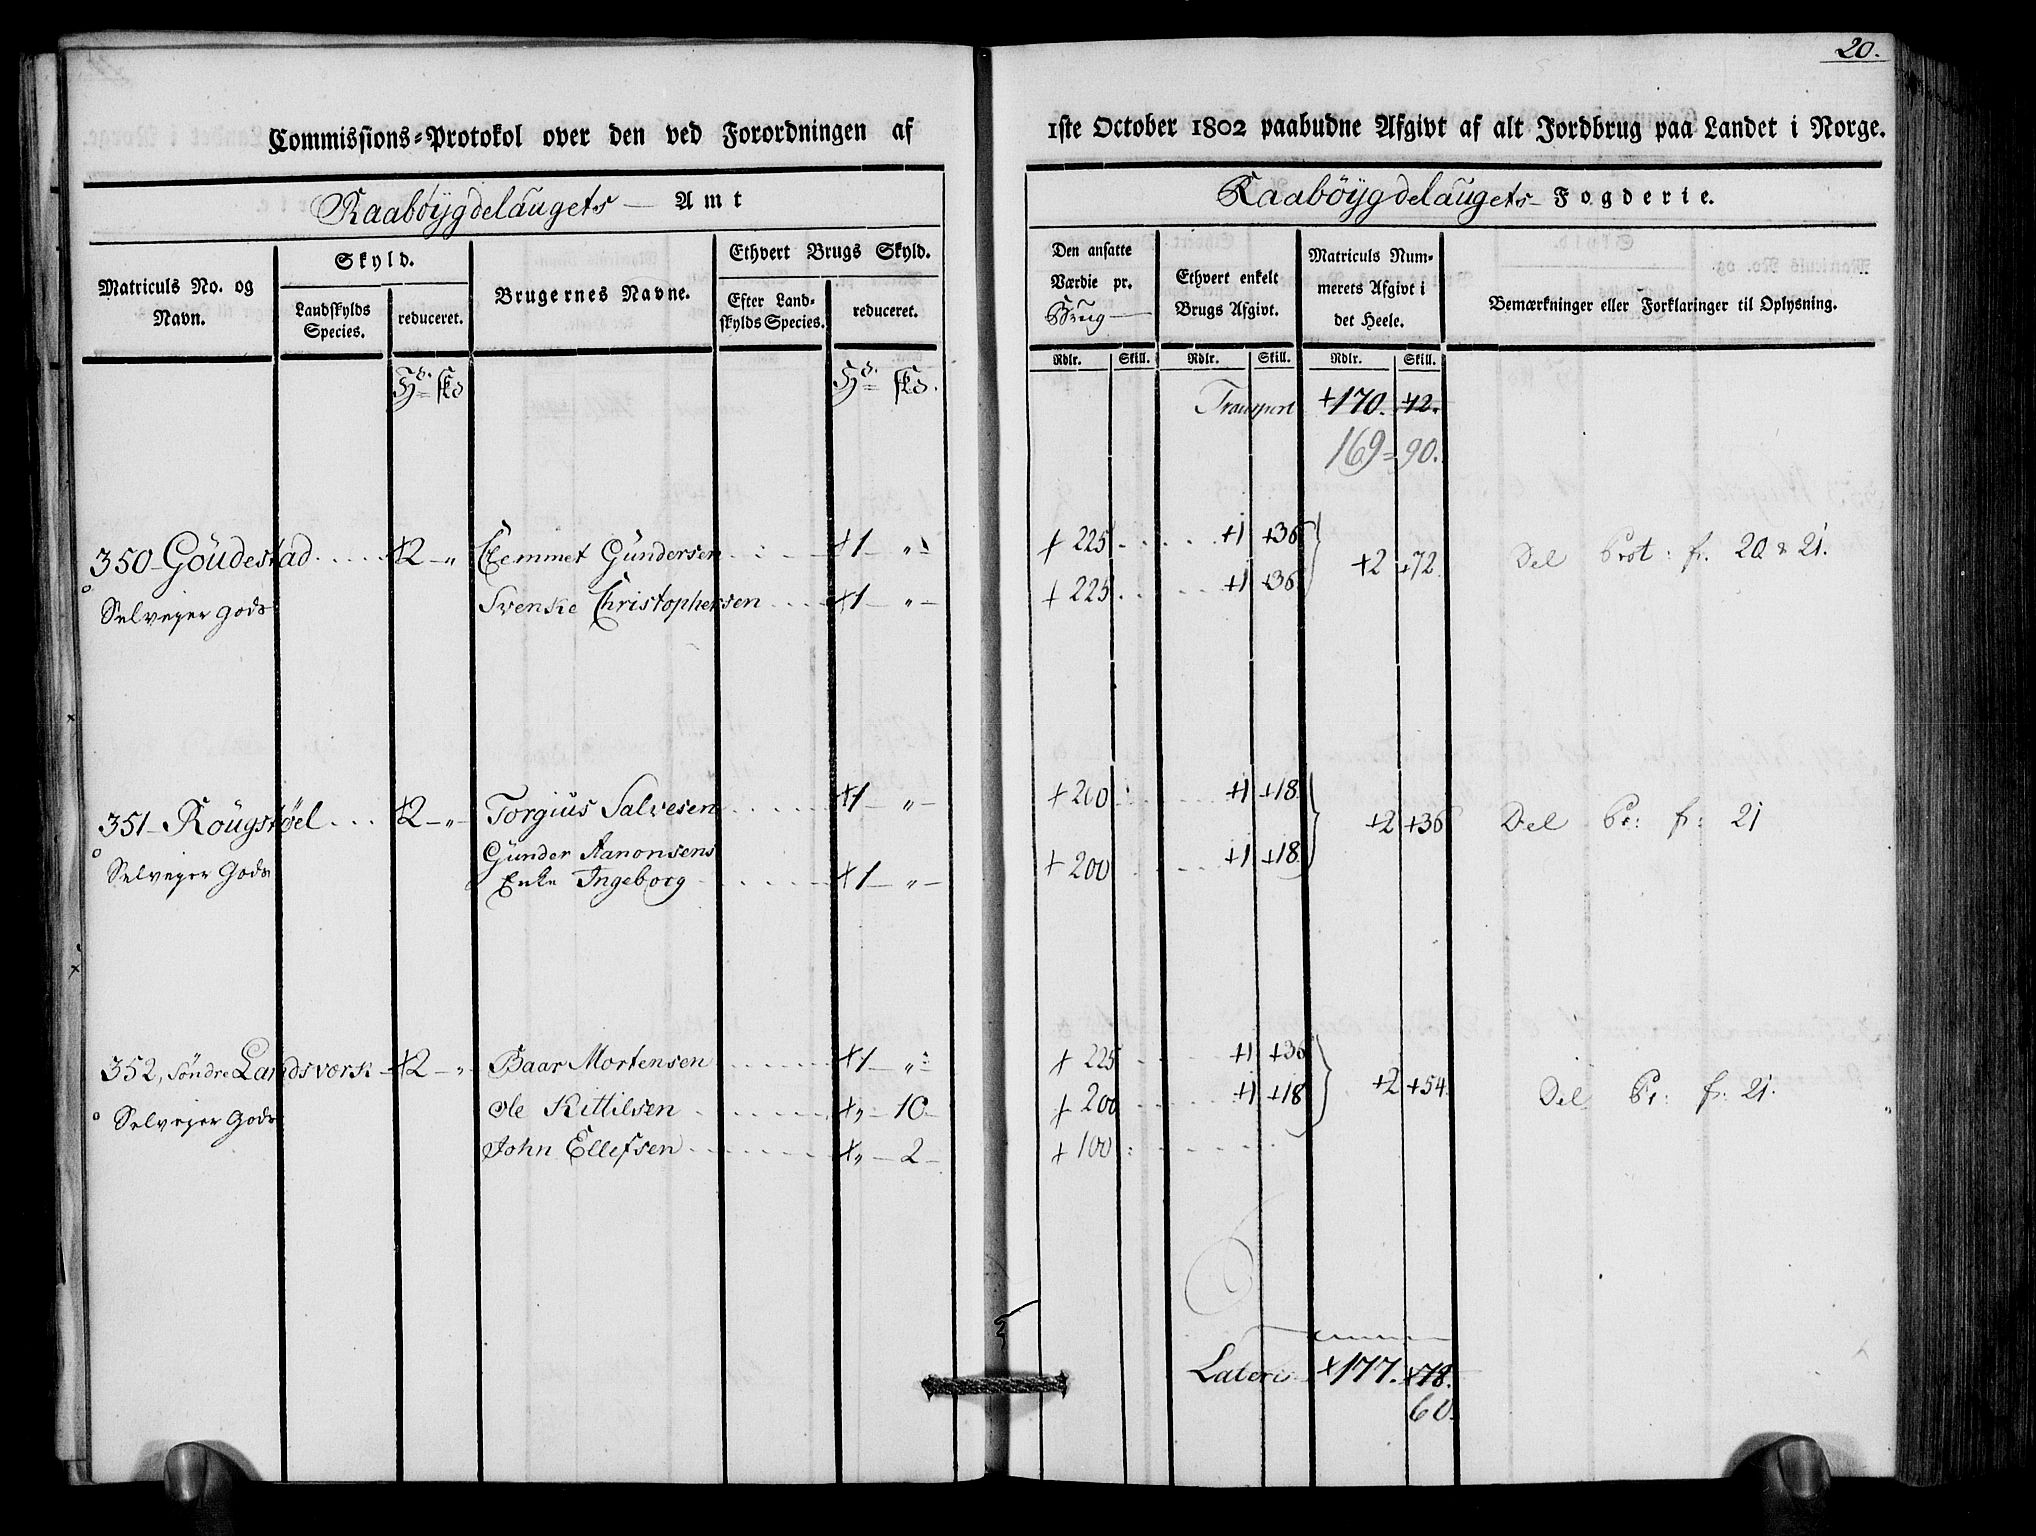 20.
Commissions-Protokol over den ved Forordningen af 1ste October 1802 paabudne Afgivt af alt Jordbrug paa Landet i Norge.
Raabøygdelaugets Amt
Raabøygdelaugets Fogderie.
Matriculs No. og Navn.
Skyld.
Landskylds Species.
reduceret.
Brugernes Navne.
Ethvert Brugs Skyld.
Efter Landskylds Species.
reduceret.
Den ansatte Værdie pr. Brug
Ethvert enkelt Brugs Afgivt.
Matriculs Nummerets Afgivt i det Heele.
Bemærkninger eller Forklaringer til Oplysning.
Rdlr. Skill. Rdlr. Skill. Rdlr. Skill.
Hd. skd Hd. skd.
Transport +170. 42.
169 = 90.
350 - Goudestad .... +2 - „ Clemmet Gundersen ... +1 - „ - + 225 .... +1 +36 +2 +72 Del Prot: fr. 20 & 21.
Selvejer gods Svenke Christophersen .... +1 - „ - + 225 .... +1 +36
351 - Rougstøel ... +2 - „ - Torgius Salvesen .... +1 - „ - + 200 .... +1 +18 +2 +36 Del Pr: fr: 21
Gunder Aanonsens
Selvejer Gods Enke Ingeborg .... +1 - „ - + 200 .... +1 +18
352, Søndre Landsværk - +2 - „ - Baar Mortensen .... +1 - „ - + 225 .... +1 +36 +2 +54. Del Pr: fr. 21.
Selvejer Gods Ole Kittilsen .... +„ - 10 - + 200 .... +1 +18
John Ellefsen .... +„ - 2 - + 100 ....
Lateris +177. +78.
60.